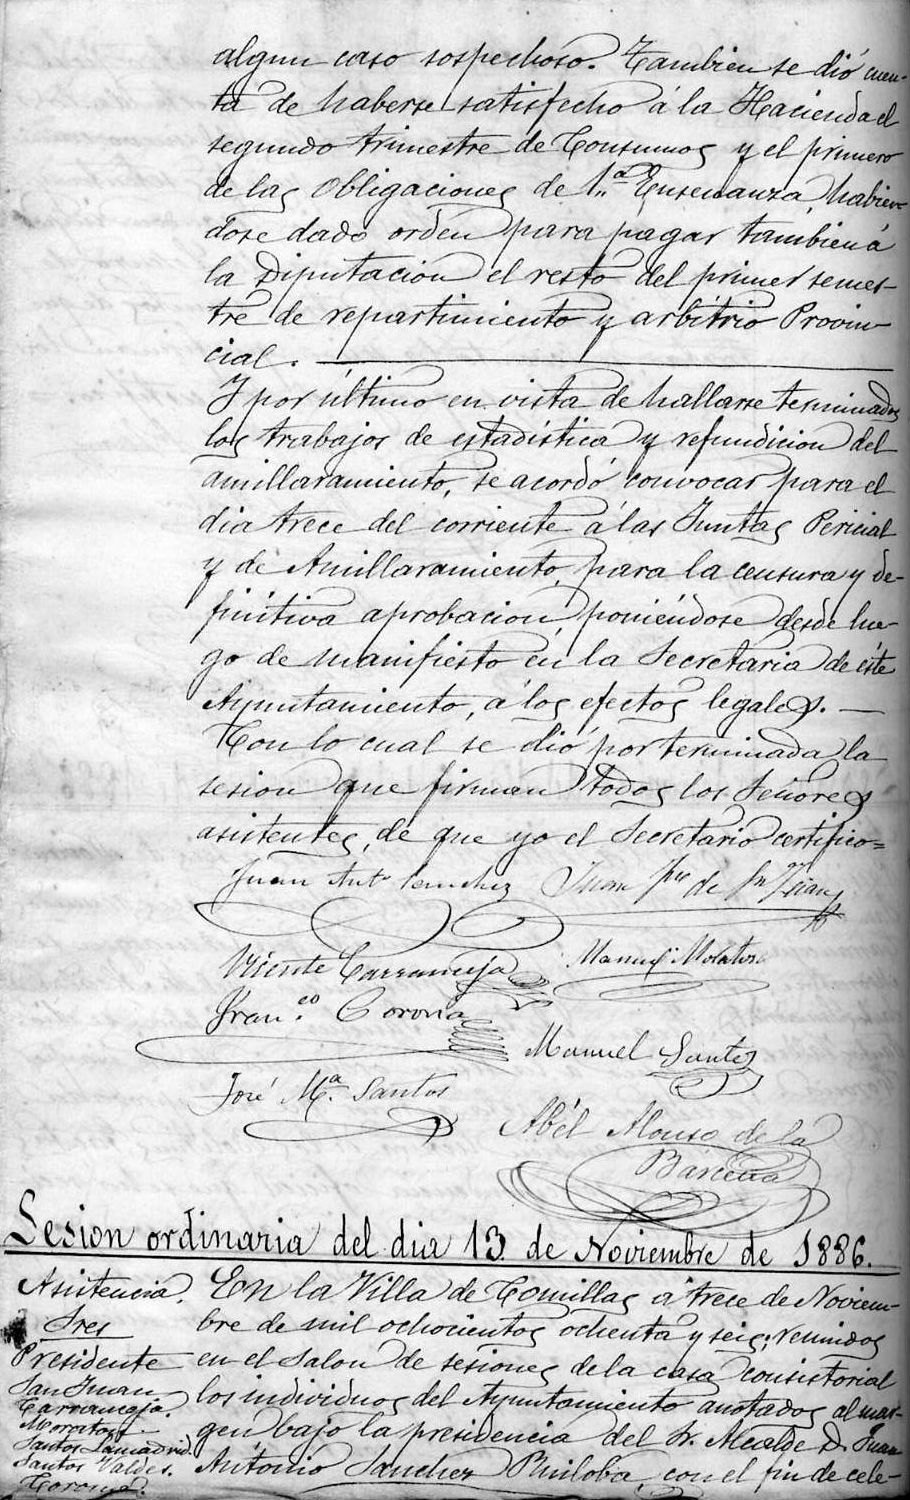 algun caso sospechoso. Tambien se dió cuen-
ta de haberse satisfecho á la Hacienda el
segundo trimestre de Consumos y el primero
de las Obligaciones de 1.ª Enseñanza, habien-
dose dado orden para pagar tambien á
la Diputacion el resto del primer semes-
tre de repartimiento y arbitrio Provin-
cial.
Y por último en vista de hallarse terminados
los trabajos de estadística y refundicion del
amillaramiento, se acordó convocar para el
dia trece del corriente á las Juntas Pericial
y de Amillaramiento, para la censura y de-
finitiva aprobacion, poniéndose desde lue-
go de manifiesto en la Secretaria de éste
Ayuntamiento, á los efectos legales.
Con lo cual se dió por terminada la
sesion que firman todos los Señores
asistentes, de que yo el Secretario certifico=
Juan Ant.º Sanchez Juan de Sn Juan
Vicente Carranceja Manuel
Fran.co Corona
Manuel Santos
José M.ª Santos
Abél Alonso de la
Bárcena
Sesion ordinaria del dia 13 de Noviembre de 1886.
Asistencia.
Sres
Presidente
San Juan
Carranceja.
Santos Lamadrid.
Santos Valdes.
Corona.
En la Villa de Comillas á trece de Noviem-
bre de mil ochocientos ochenta y seis; reunidos
en el Salon de sesiones de la casa consistorial
los individuos del Ayuntamiento anotados al mar-
gen bajo la presidencia del Sr. Alcalde D. Juan
António Sanchez Philoba, con el fin de cele-